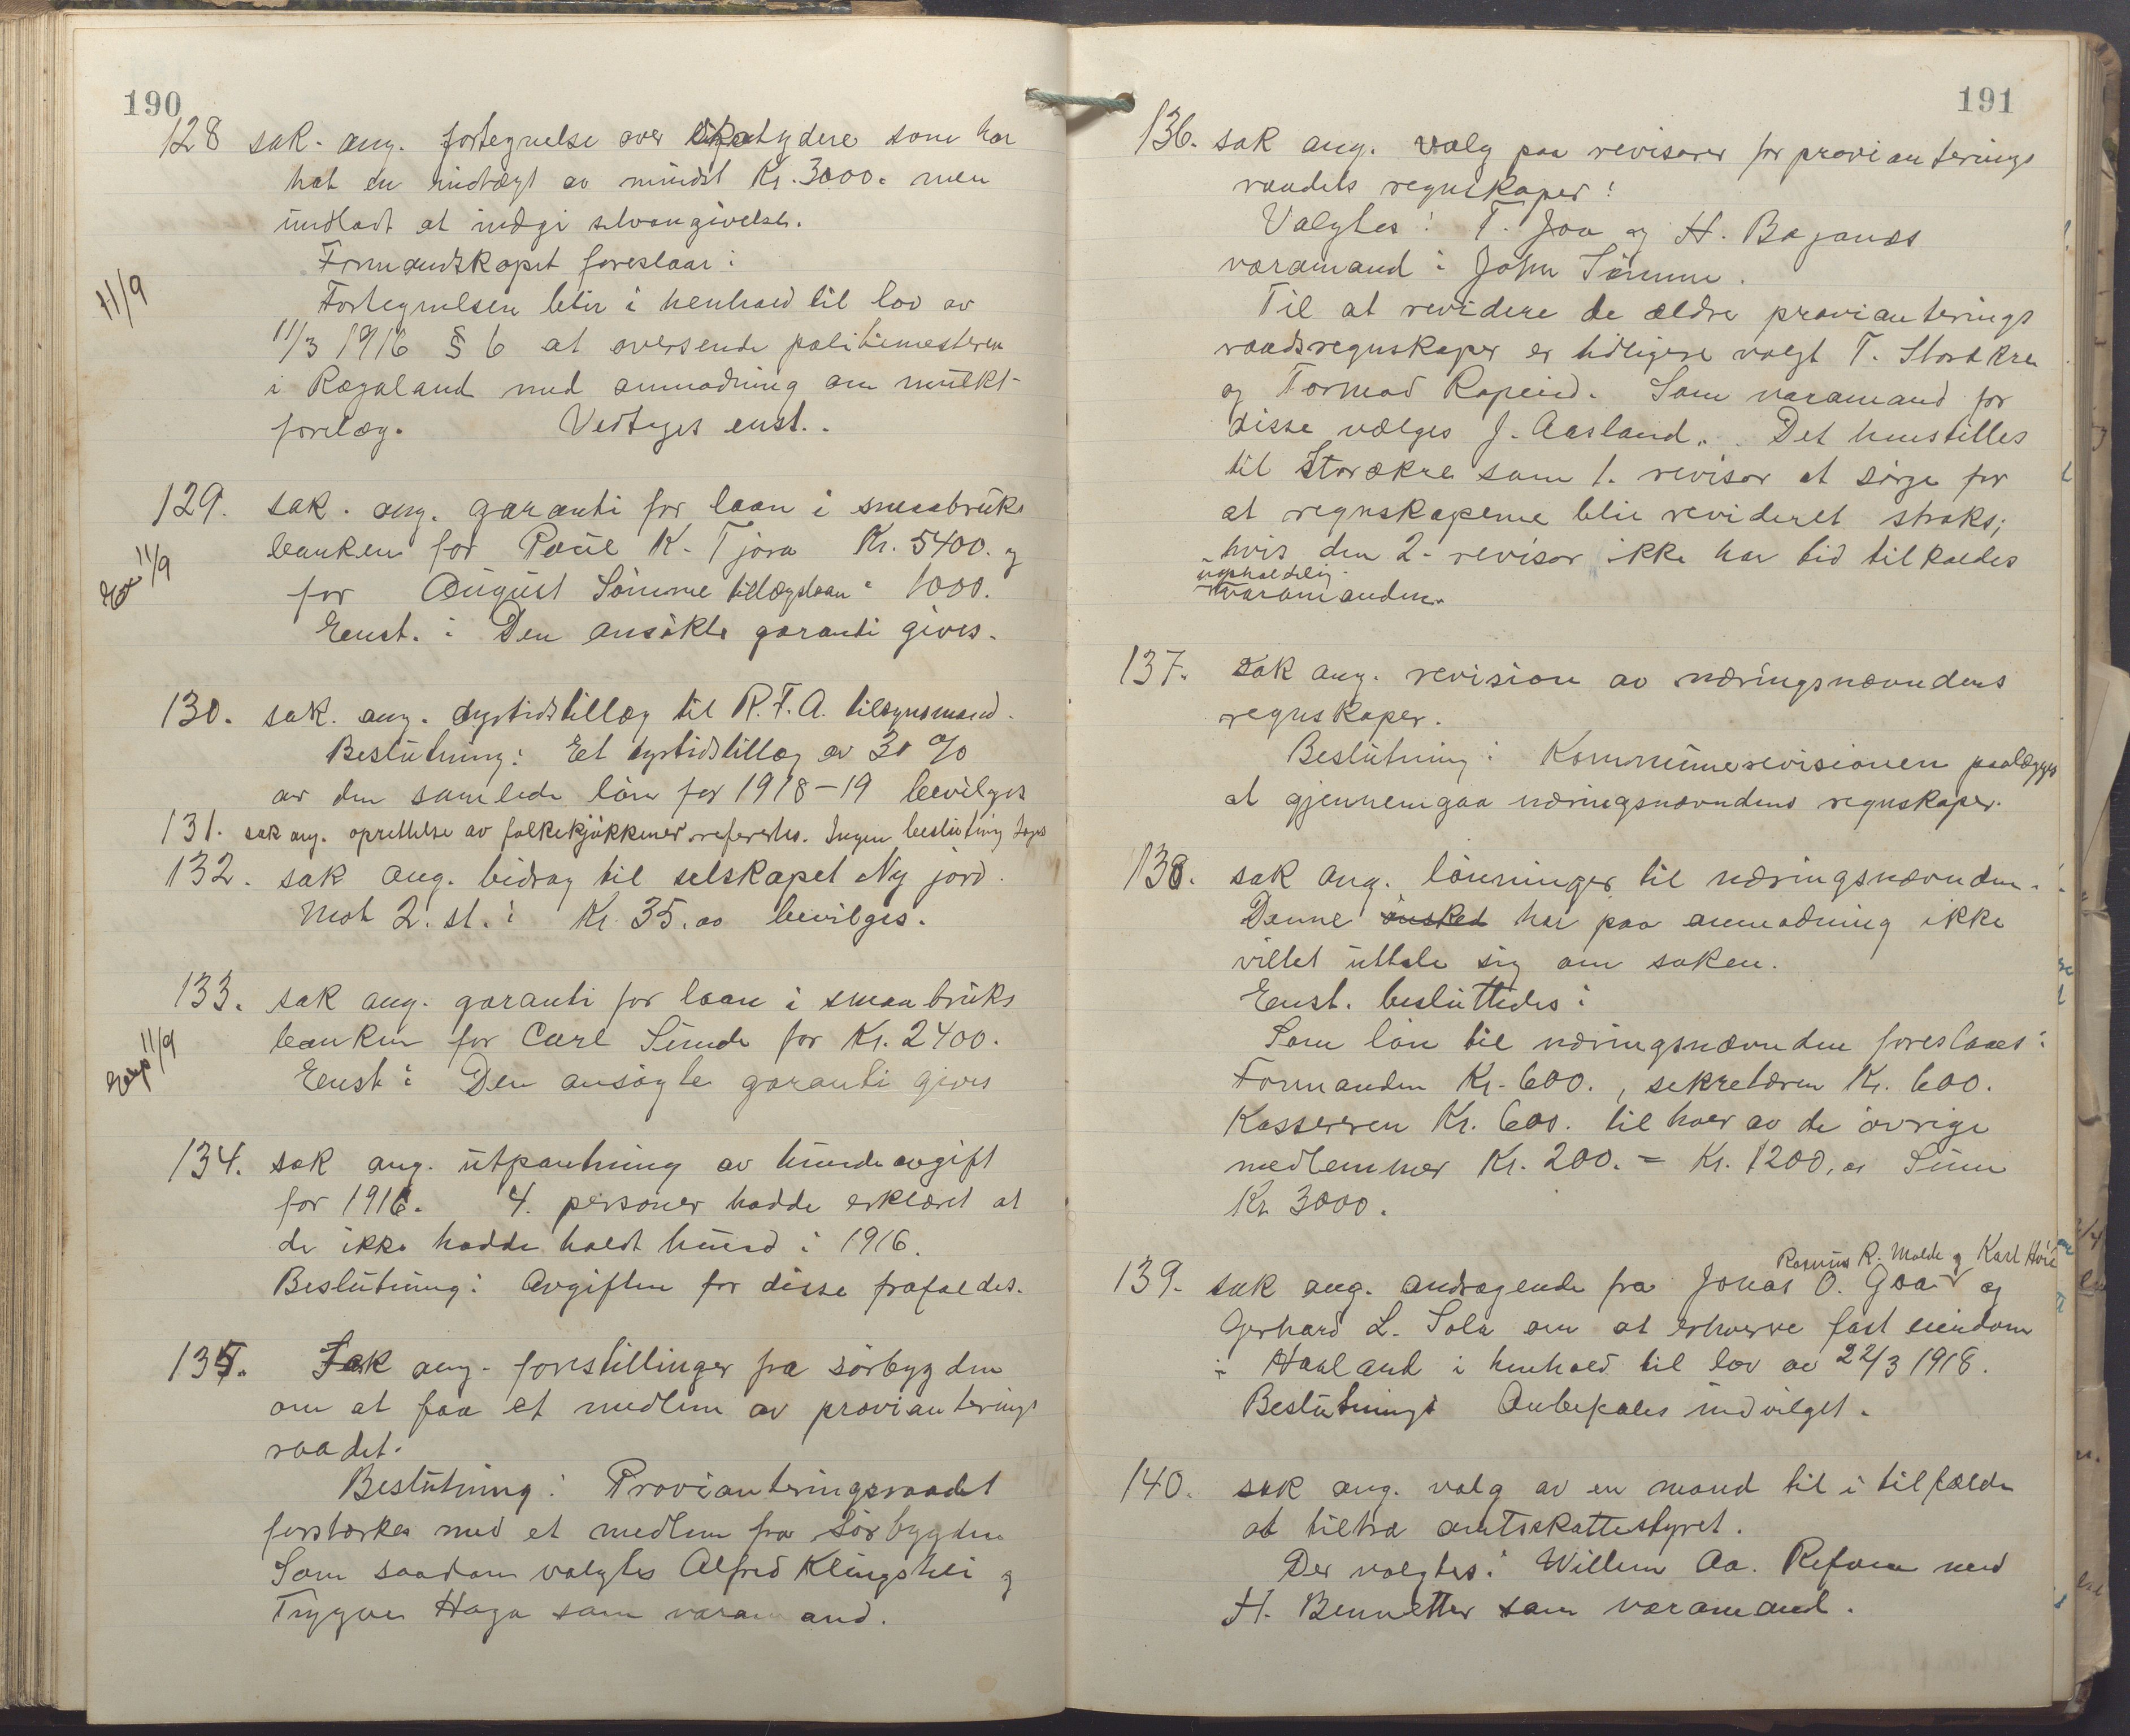 190
128 sak. ang. fortegnelse over skatydere som har
hat en indtægt av mindst Kr. 3000. men
undladt at indgi selvangivelse.
Formandskapet foreslaar:
11/9
Fortegnelsen blir i henhold til lov av
11/3 1916 § 6 at oversende politimesteren
i Rogaland med anmodning om mulkt-
forelæg. Vedtages enst..
129. sak. ang. garanti for laan i smaabruks
banken for Paul K. Tjora Kr. 5400. og
11/9
for August Sömme tillægslaan " 1000.
Enst.: Den ansökte garanti gives.
130. sak. ang. dyrtidstillæg til R.F.A. tilsynsmand.
Beslutning: Et dyrtidstillæg av 30 %
av den samlede lön for 1918-19 bevilges
131. sak ang. oprettelse av folkekjökkener refertes. Ingen beslutning toges
132. sak ang. bidrag til selskapet Ny jord.
Mot 2. st.: Kr. 35.00 bevilges.
133. sak ang. garanti for laan i smaabruks
banken for Carl Sunde for Kr. 2400.
Exp 11/9
Enst: Den ansögte garanti gives
134. sak ang. utpantning av hundeavgift
for 1916. 4. personer hadde erklæret at
de ikke hadde holdt hund i 1916.
Beslutning: Avgiften for disse frafaldes.
135. Sak ang. forestillinger fra sörbygden
om at faa et medlem av provianterings
raadet.
Beslutning: Provianteringsraadet
forstærkes med et medlem fra Sörbygden
Som saadan valgtes Alfred Klingshei og
Trygve Haga som varamand.
191
136. sak ang. valg paa revisorer for provianterings
raadets regnskaper:
Valgtes: T. Joa og H. Bøjanæs
varamand: John Sömme.
Til at revidere de ældre provianterings
raadsregnskaper er tidligere valgt T. Storækre
og Tormod Røpeid. Som varamand for
disse vælges J. Aasland. Det henstilles
til Storækre som 1. revisor at sörge for
at regnskaperne blir revideret straks;
hvis den 2. revisor ikke har tid tilkaldes
uopholdelig
varamanden.
137. Sak ang. revision av næringsnævndens
regnskaper.
Beslutning: Kommunerevisionen paalægges
at gjennemgaa næringsnævndens regnskaper.
138. sak ang. lönninger til næringsnævnden.
Denne önsked har paa anmodning ikke
villet uttale sig om saken.
Enst. besluttedes:
Som lön til næringsnævnden foreslaaes:
Formanden Kr. 600., sekretæren Kr. 600.
Kassereren Kr. 600. til hver av de övrige
medlemmer Kr. 200. = Kr. 1200,00 Sum
Kr 3000.
Rasmus R. Molde og Karl
139. sak ang. andragende fra Jonas O. Goa og
Gerhard L. Sola om at erhverve fast eiendom
i Haaland i henhold til lov av 22/3 1918.
Beslutning: Anbefales indvilget.
140. sak ang. valg av en mand til i tilfælde
at tiltræ amtsskattestyret.
Der valgtes: Willum Aa. Refsnæs med
H. Bennetter som varamand.